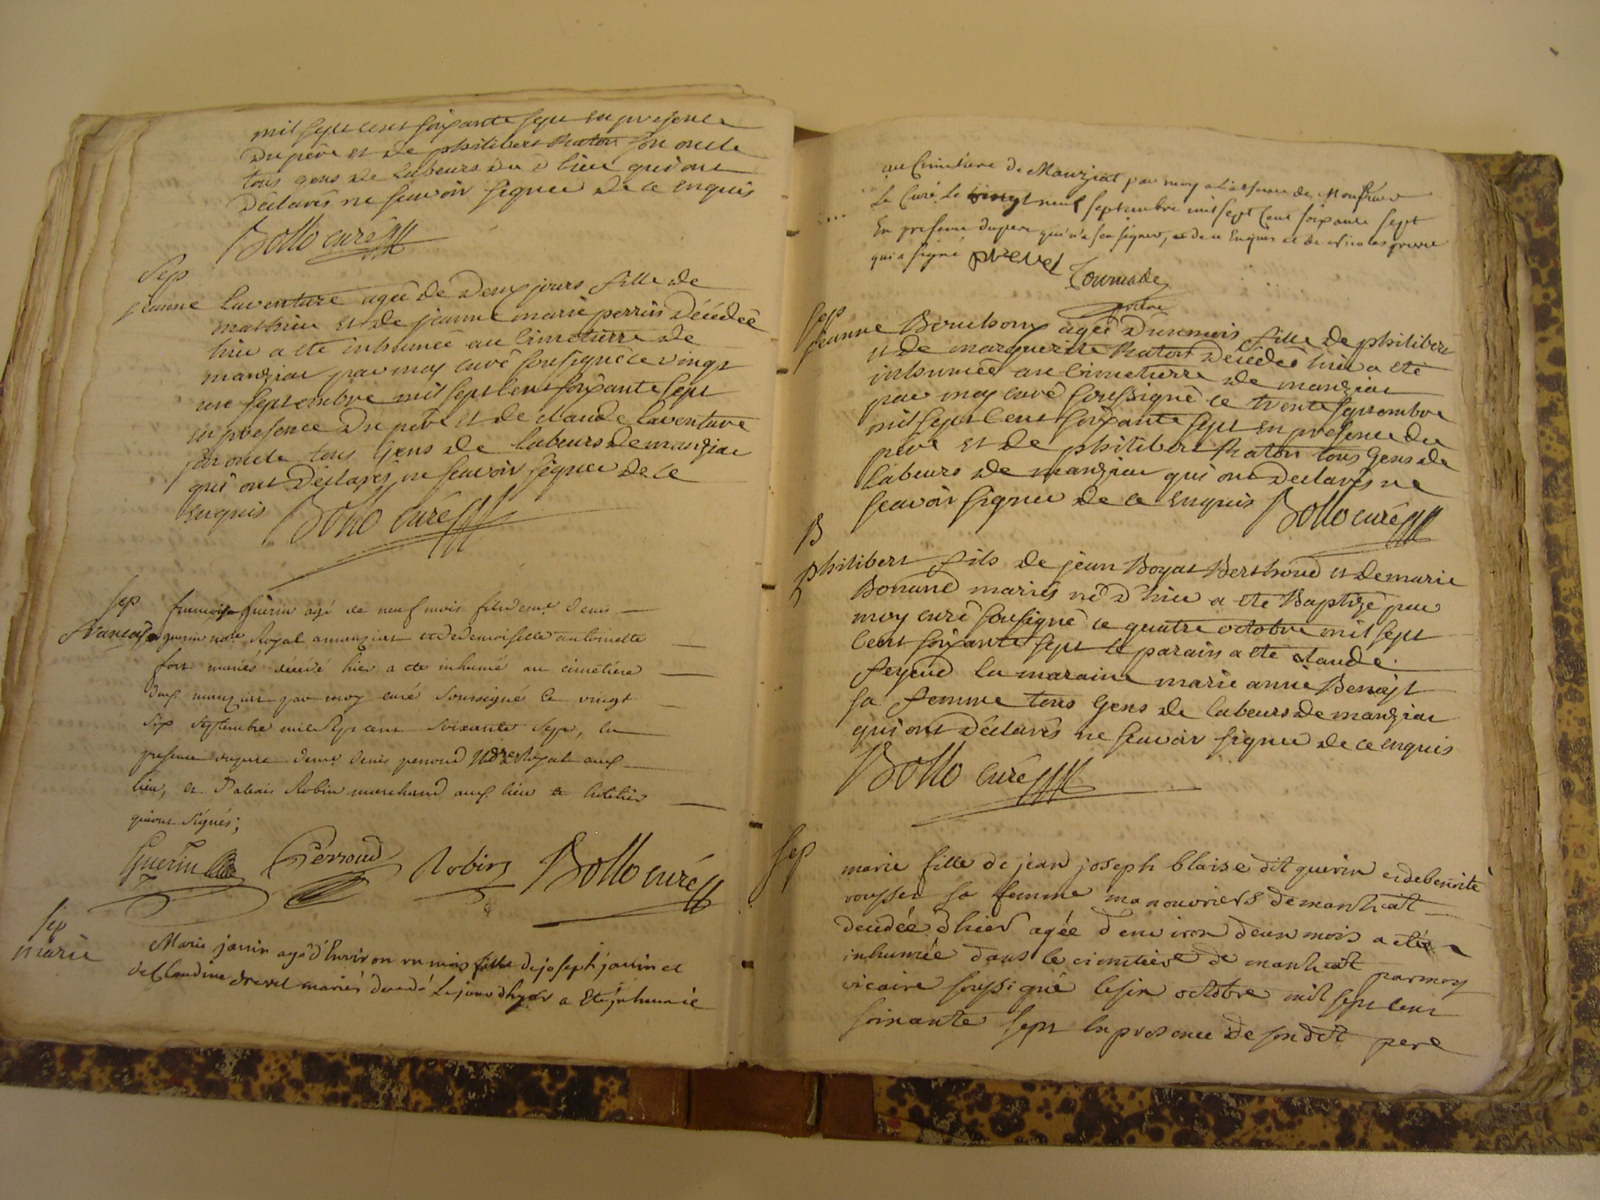 mil sept cent soixante sept en presence
du pere et de philibert Raton son oncle
tous gens de labeurs du d lieu qui ont
déclarés ne scavoir signer de ce enquis
Bollo curé
Sep
jeanne
laventure agée de deux jours fille de
mathieu et de jeanne marie perrin décédée
hier a eté inhumée au cimetierre de
manziat par moy curé soussigné le vingt
un septembre mil sept cent soixante sept
en presence du pere et de claude laventure
son oncle tous gens de labeurs de manziat
qui ont déclarés ne scavoir signer de ce
enquis
Bollo curé
Sep
francois
francois guerin agé de neuf mois fils de
guerin Royal a manziat et de demoiselle antoinette
fort mariés décédé hier a eté inhumé au cimetiere
dud manziat par moy curé soussigné le vingt
six septembre mil sept cent soixante sept, en
presence du pere denis perroud Royal aud
lieu, et Robin marchand aud lieu
qui ont signés;
Guerin Perroud Robin Bollo curé
Sep
marie
Marie janin agé d'Environ un mois fille de joseph janin et
de Claudine drevet mariés decedé le jour d'hyer a Eté inhumée
au Cimetiere de Manziat par moy a l'absence de Monsieur
Le Curé Le vingt neuf septembre mil sept Cent soixante sept
En presence du pere qui n'a sceu signer, de ce Enquis et de
qui a signé prevel
Sep
jeanne Bouchoux agée d'un mois fille de philibert
et de marguerite Raton décédée hier a eté
inhumée au cimetierre de manziat
par moy curé soussigné le trente septembre
mil sept cent soixante sept en presence du
pere et de philibert Raton tous gens de
labeurs de manziat qui ont déclarés ne
scavoir signer de ce enquis Bollo curé
B
philibert fils de jean Boyat Berthoud et de marie
Bonand mariés né d'hier a eté Baptizé par
moy curé soussigné le quatre octobre mil sept
cent soixante sept le parain a eté claude
feyeud la maraine marie anne Benoist
sa femme tous gens de labeurs de manziat
qui ont déclarés ne scavoir signer de ce enquis
Bollo curé
Sep
marie fille de jean joseph blaise dit guerin et de benoite
sa femme manouvriers de manziat
decedée d'hier agée d'environ deux mois a eté
inhumée dans le cimetiere de manziat par moy
vicaire soussigné le six octobre mil sept cent
soixante sept en presence de son dit pere